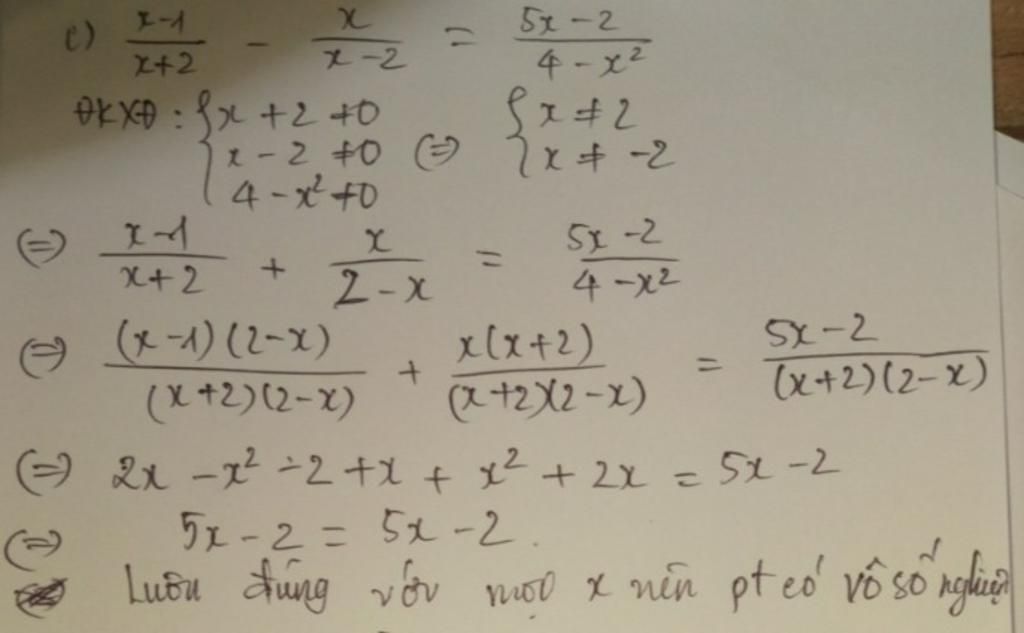 c) \frac{x-1}{x+2} - \frac{x}{x-2} = \frac{5x-2}{4-x²}
ĐKXĐ: { x + 2 ≠ 0 ; x - 2 ≠ 0 ; 4 - x² ≠ 0 (=) { x ≠ 2 ; x ≠ -2
(=) \frac{x-1}{x+2} + \frac{x}{2-x} = \frac{5x-2}{4-x²}
(=) \frac{(x-1)(2-x)}{(x+2)(2-x)} + \frac{x(x+2)}{(x+2)(2-x)} = \frac{5x-2}{(x+2)(2-x)}
(=) 2x - x² - 2 + x + x² + 2x = 5x - 2
(=) 5x - 2 = 5x - 2.
Luôn đúng với mọi x nên pt có vô số nghiệm